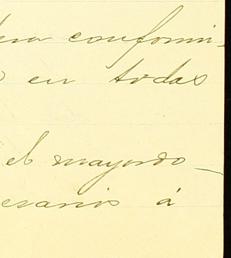 conformi-
en todas
el mayordo-
esarios á